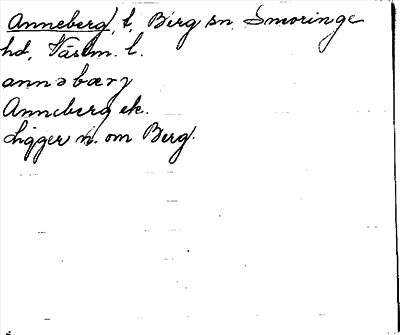 Anneberg, t, Berg sn Snevringe
hd, Västm. l.
annəbærj
Anneberg ek.
Ligger n. om Berg.